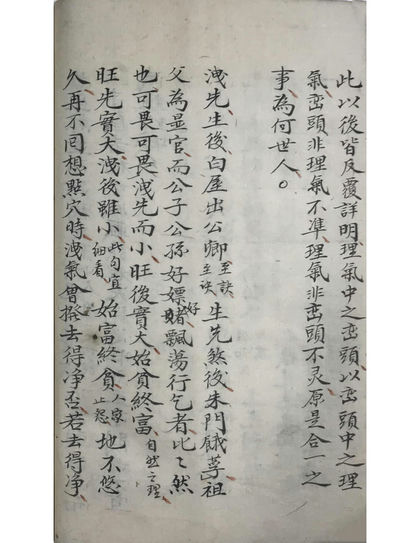 此以後皆反覆詳明理氣中之巒頭以巒頭中之理
氣巒頭非理氣不準理氣非巒頭不灵原是合一之
事為何世人。
洩先生後白屋出公卿至訣至诀生先煞後朱門餓莩祖
父為显官而公子公孫好嫖好赌飄湯行乞者比〻然
也可畏可畏洩先而小旺後實大始貧終富自然之理
旺先實大洩後雖小此句宜細看始富終貧人家止怨地不悠
久再不囘想點穴時洩氣曾撥去得净否若去得净